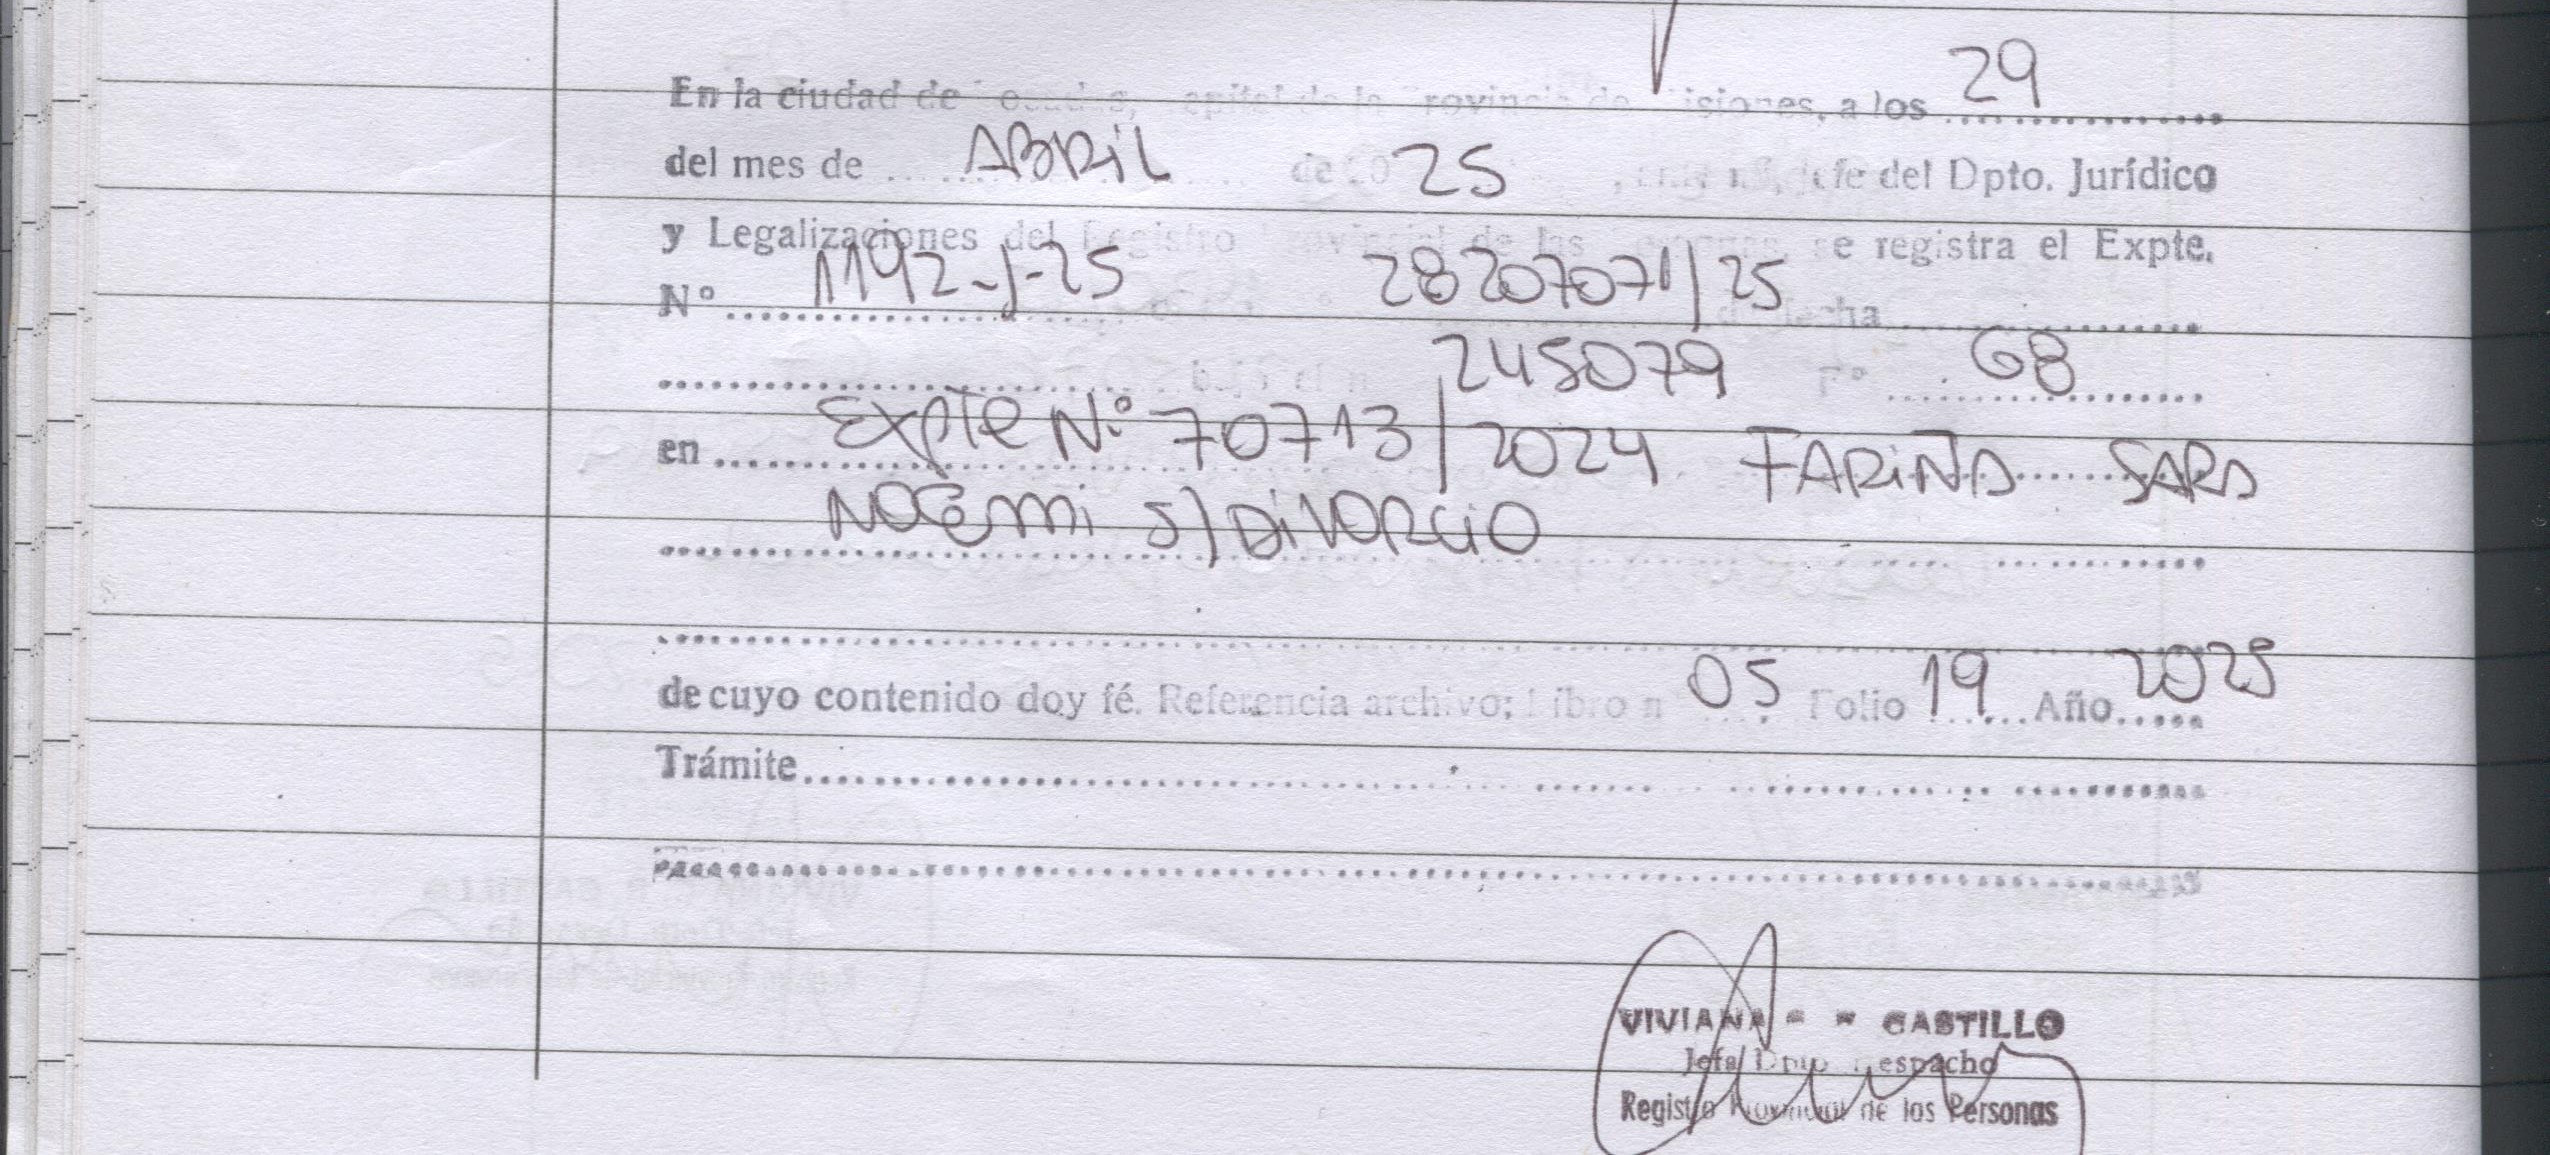 En la ciudad de Posadas, capital de la Provincia de Misiones, a los 29
del mes de ABRIL de 20 25, Jefe del Dpto. Jurídico
y Legalizaciones del Registro Provincial de las Personas, se registra el Expte.
N° 1192-J-25 28207071/25 fecha
245079 F° 68
en EXPTE N° 70713/2024 FARIÑA SARA
NOEMI S/DIVORCIO
de cuyo contenido doy fé. Referencia archivo; Libro n 05 Folio 19 Año 2025
Trámite
VIVIANA CASTILLO
Jefa Dpto Despacho
Registro Provincial de las Personas